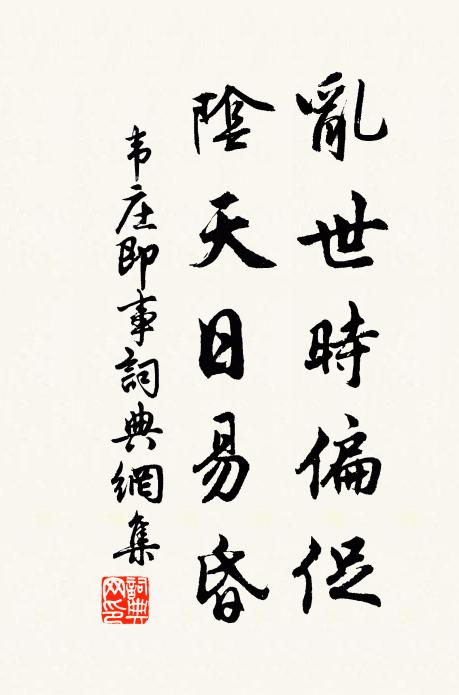 亂世時偏促
陰天日易昏
韦庄即事詞典網集
詞典網印